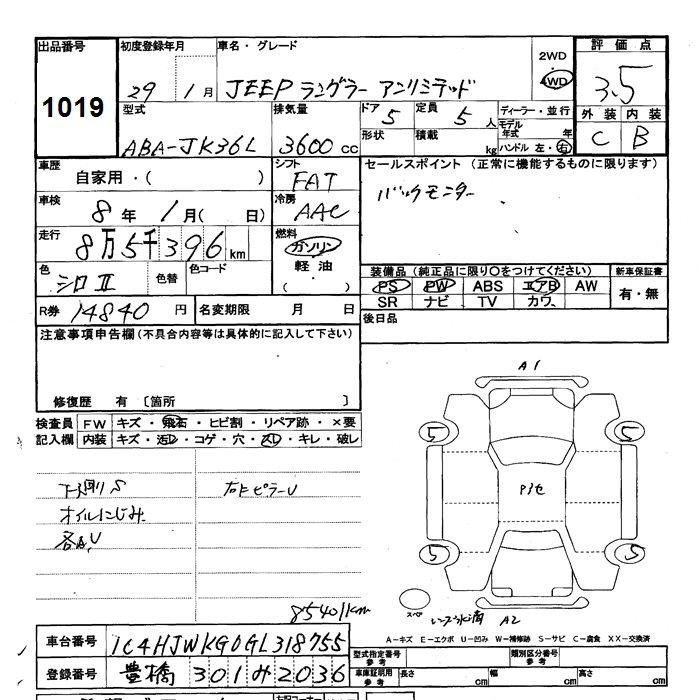 出品番号 初度登録年月 車名・グレード 評価点
1019 29年 1月 JEEP ラングラー アンリミテッド 2WD 4WD 3.5
外装 内装
C B
型式 排気量 ドア 定員 ディーラー・並行
ABA-JK36L 3600cc 5 5人 モデル年式 年
形状 積載 kg ハンドル 左・右
車歴 シフト セールスポイント (正常に機能するものに限ります)
自家用・( ) FAT バックモニター
車検 冷房
8年 1月( 日) AAC
走行 燃料
8万5千396km ガソリン
軽油
( ・ )
色 色替 色コード
シロII
装備品 (純正品に限り○をつけてください) 新車保証書
PS PW ABS エアB AW 有・無
SR ナビ TV カワ
R券 14840円 名変期限 月 日 後日品
注意事項申告欄 (不具合内容等は具体的に記入して下さい)
修復歴 有 〔箇所 〕
検査員 FW キズ・飛石・ヒビ割・リペア跡・×要
記入欄 内装 キズ・汚レ・コゲ・穴・スレ・キレ・破レ
下廻りS 右ドピラーU
オイルにじみ
各A,U
85401km
A1
5 5
5 5
スペア A2
A-キズ E-エクボ U-凹み W-補修跡 S-サビ C-腐食 XX-交換済
車台番号 1C4HJWKG0GL318755
登録番号 豊橋 301 み 2036
型式指定番号 参考 類別区分番号 参考
車庫証明用 参考 長さ cm 幅 cm 高さ cm